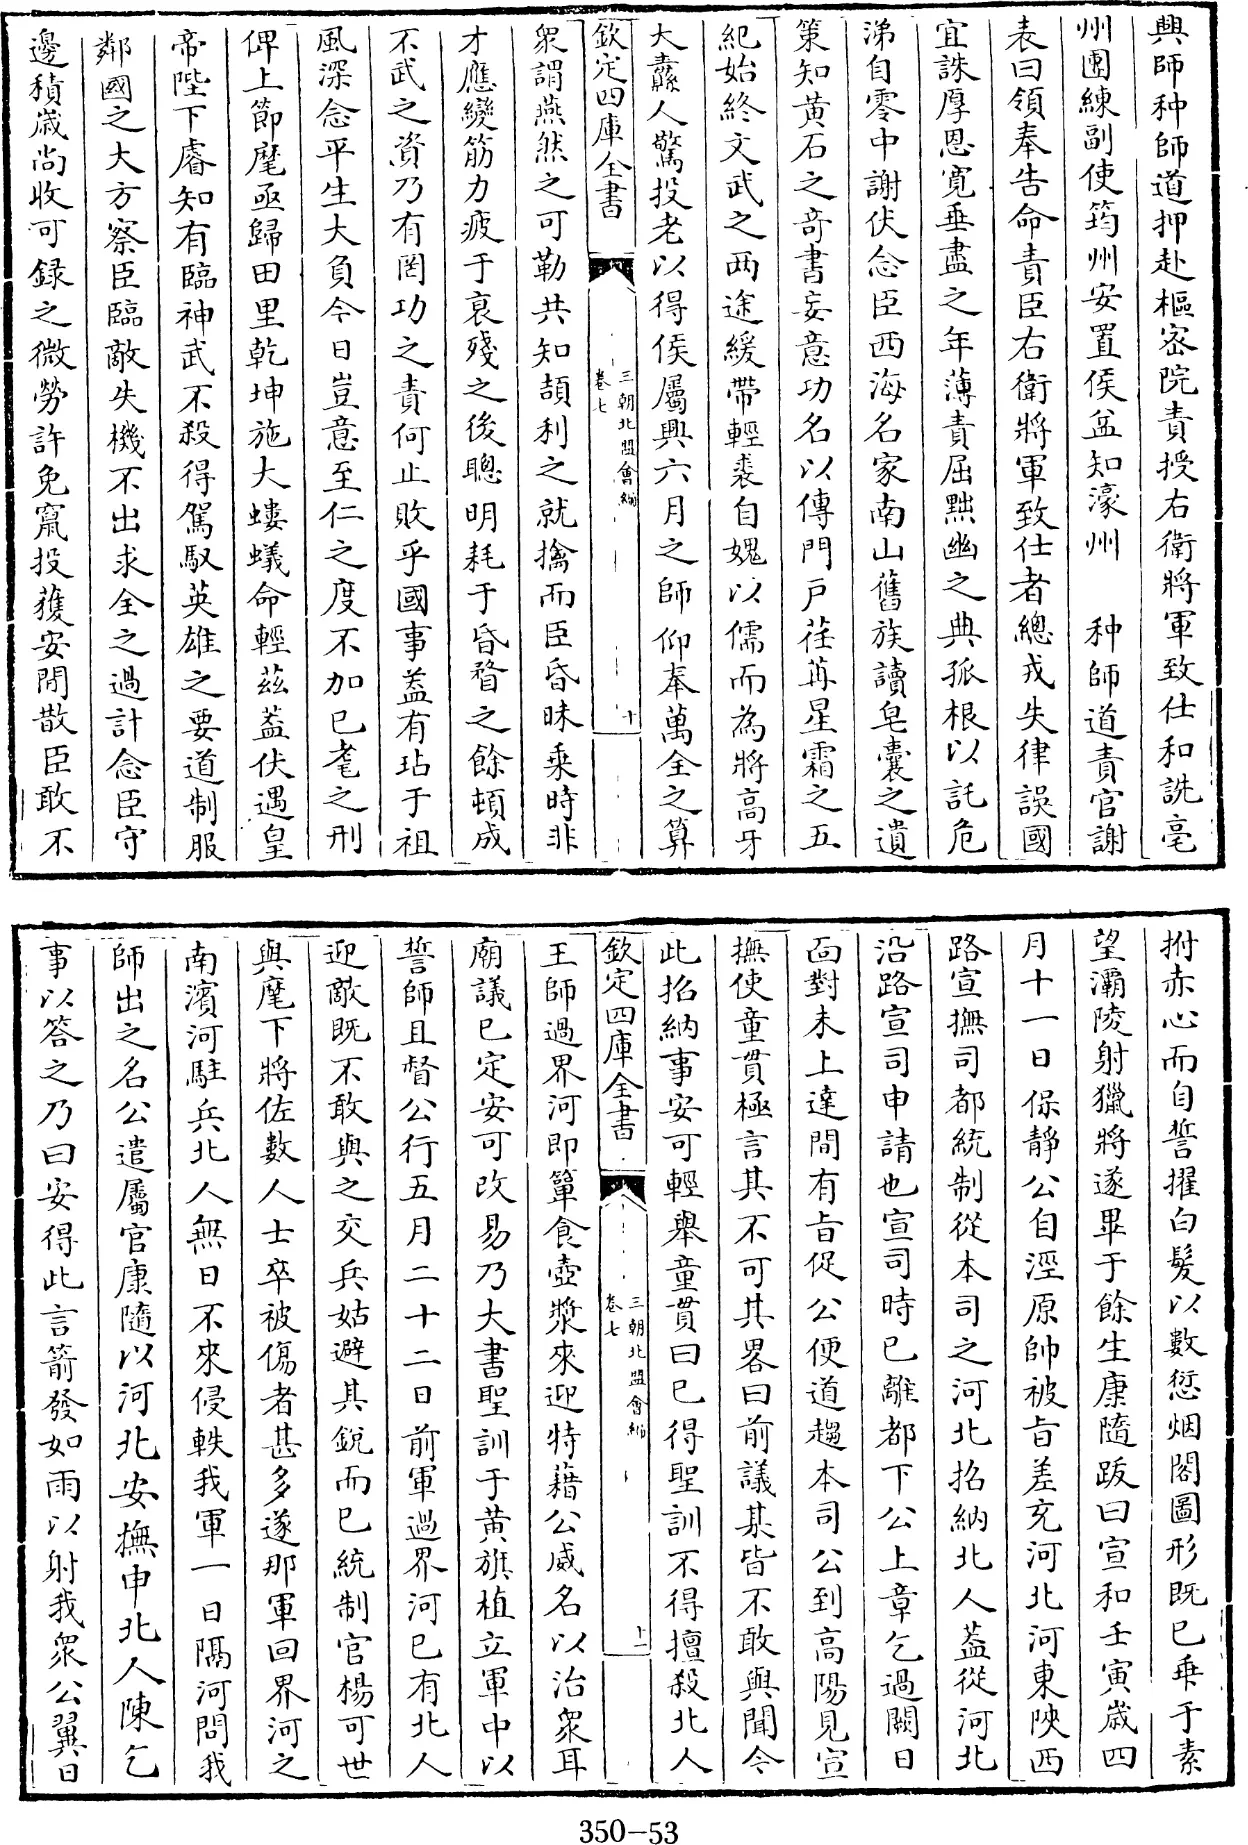 興師种師道押赴樞密院責授右衛將軍致仕和詵亳
州團練副使筠州安置侯益知濠州　种師道責官謝
表曰領奉告命責臣右衛將軍致仕者總戎失律誤國
宜誅厚恩寛垂盡之年薄責屈黜幽之典孤根以託危
涕自零中謝伏念臣西海名家南山舊族讀皂囊之遺
策知黄石之竒書妄意功名以傳門戸荏苒星霜之五
紀始終文武之兩途緩帶輕裘自媿以儒而為將高牙
大纛人驚投老以得侯屬興六月之師仰奉萬全之算
欽定四庫全書
三朝北盟會編
卷七
十
衆謂燕然之可勒共知頡利之就擒而臣昏昧乗時非
才應變筋力疲于衰殘之後聰明耗于昏瞀之餘頓成
不武之資乃有罔功之責何止敗乎國事葢有玷于祖
風深念平生大負今日豈意至仁之度不加已耄之刑
俾上節麾亟歸田里乾坤施大螻蟻命輕茲葢伏遇皇
帝陛下睿知有臨神武不殺得駕馭英雄之要道制服
鄰國之大方察臣臨敵失機不出求全之過計念臣守
邊積歲尚收可録之微勞許免竄投獲安閒散臣敢不
拊赤心而自誓擢白髮以數愆烟閣圖形既已乖于素
望灞陵射獵將遂畢于餘生康隨跋曰宣和壬寅歲四
月十一日保靜公自涇原帥被旨差充河北河東陜西
路宣撫司都統制從本司之河北招納北人葢從河北
沿路宣司申請也宣司時已離都下公上章乞過闕日
面對未上達間有旨促公便道趨本司公到高陽見宣
撫使童貫極言其不可其畧曰前議某皆不敢與聞今
此招納事安可輕舉童貫曰已得聖訓不得擅殺北人
欽定四庫全書
三朝北盟會編
卷七
十一
王師過界河即簞食壺漿來迎特藉公威名以治衆耳
廟議已定安可改易乃大書聖訓于黄旗植立軍中以
誓師且督公行五月二十二日前軍過界河已有北人
迎敵既不敢與之交兵姑避其鋭而已統制官楊可世
與麾下將佐數人士卒被傷者甚多遂那軍回界河之
南濱河駐兵北人無日不來侵軼我軍一日隔河問我
師出之名公遣屬官康隨以河北安撫申北人陳乞
事以答之乃曰安得此言箭發如雨以射我衆公翼日
350-53